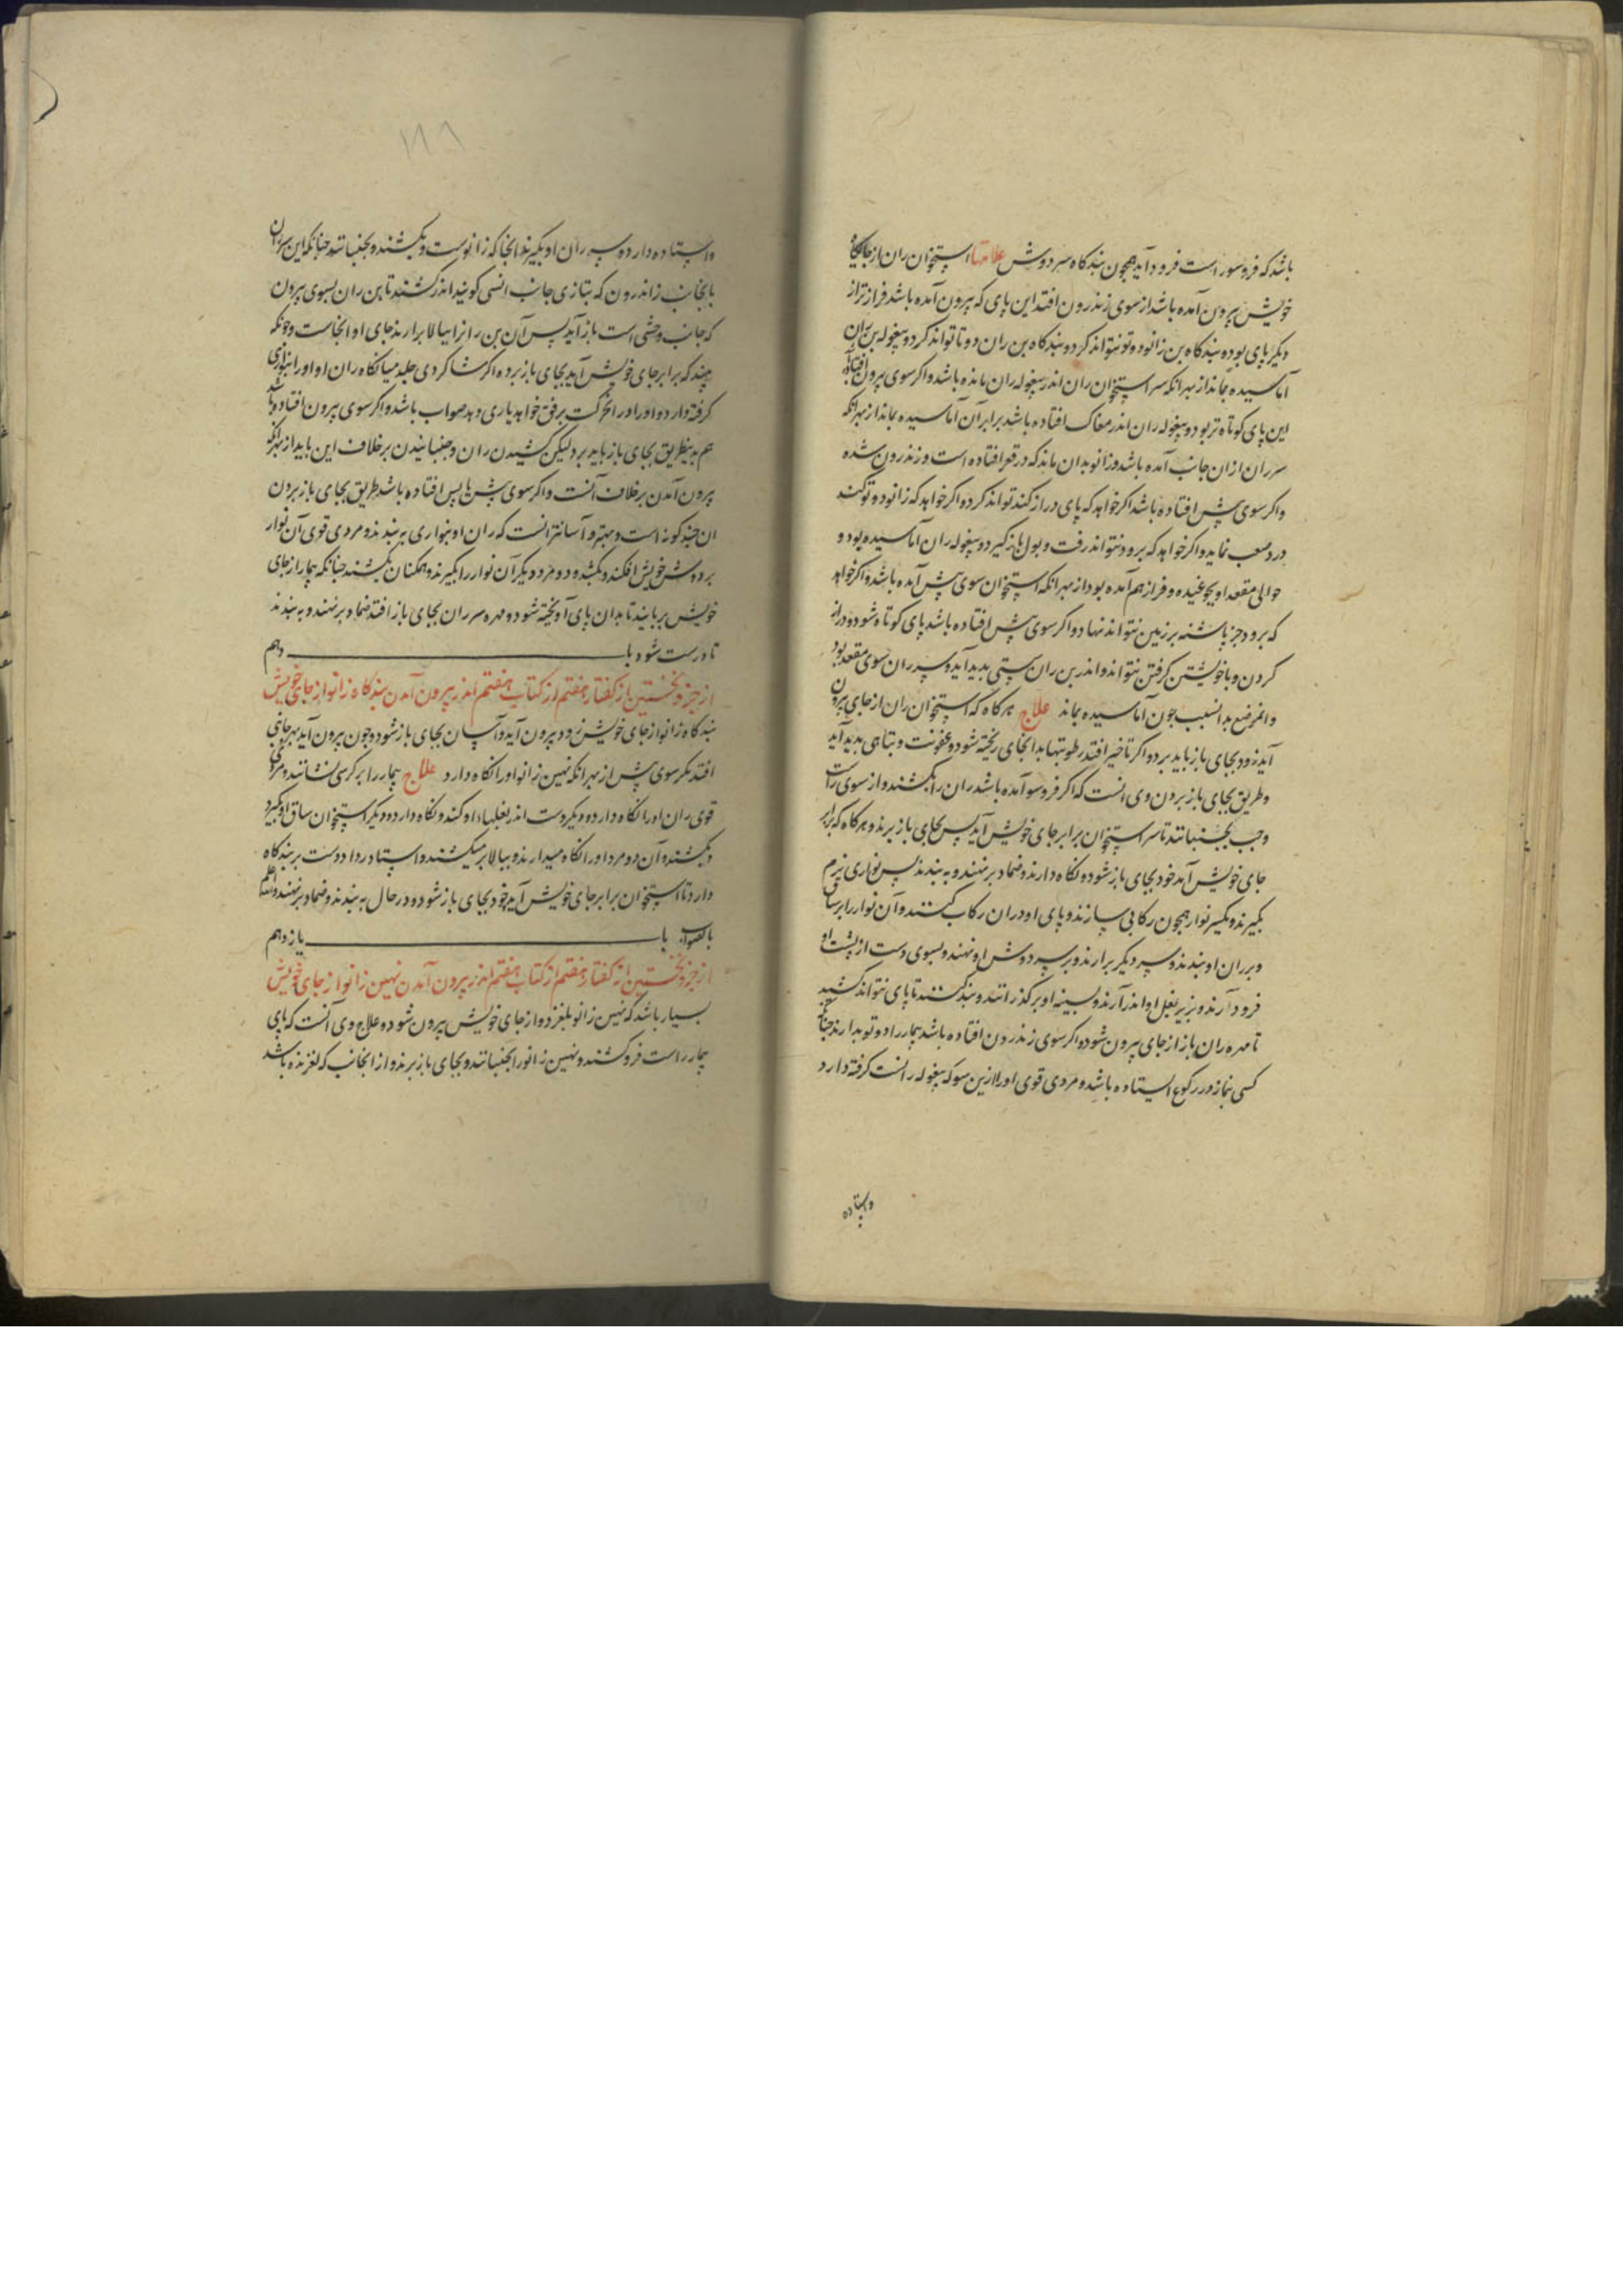 باشد که فروسور است فرود آید همچون بندکاه سر دوش علامتها استخوان ران از جایکاه
خویش بیرون آمده باشد از سوی زندرون افتد این پای که بیرون آمده باشد فرازتر از
دیکر پای بود و بندکاه بن زانو دوتو نتواند کرد و بندکاه بن ران دوتا نتواند کرد و بیغوله بن ران
آماسیده بماند از بهر انکه سر استخوان ران اندر بیغوله ران مانده باشد و اکر سوی بیرون افتاده
این پای کوتاه تر بود و بیغوله ران اندر مغاک افتاده باشد برابر آن آماسیده بماند از بهر انکه
سر ران از ان جانب آمده باشد و زانو بدان ماند که در قعر افتاده است و زندرون شده
و اکر سوی پیش افتاده باشد اکر خواهد که پای دراز کند تواند کرد و اکر خواهد که زانو دوتو کند
درد صعب نماید و اکر خواهد که برود نتواند رفت و بول باز کیرد و بیغوله ران آماسیده بود و
حوالی مقعد او بیچوغیده و فراز هم آمده بود از بهر انکه استخوان سوی پیش آمده باشد و اکر خواهد
که برود جز پاشنه بر زمین نتواند نهاد و اکر سوی پس افتاده باشد پای کوتاه شود و دراز
کردن و با خویشتن کرفتن نتواند و اندر بن ران سستی بدید آید و سر ران سوی مقعد بود
و انموضع بدانسبب چون آماسیده بماند علاج هر کاه که استخوان ران از جای بیرون
آید زود بجای باز باید برد و اکر تاخیر افتد رطوبتها بدانجای ریخته شود و عفونت و تباهی بدید آید
و طریق بجای باز بردن وی انست که اکر فروسو آمده باشد ران را بکشند و از سوی راست
و چپ بجنبانند تا سر استخوان برابر جای خویش آید پس بجای باز برند و هر کاه که برابر
جای خویش آمد خود بجای باز شود و نکاه دارند و ضماد بر نهند و به بندند پس نواری نرم
بکیرند و یکسر نوار همچون رکابی سازند و پای او در ان رکاب کنند و آن نوار را بر ساق
و بر ران او بندند و سر دیکر برارند و بر سر دوش او نهند و بسوی دست از پشت او
فرود آرند و بزیر بغل او اندر آرند و بسینه او بر کذرانند و بند کنند تا پای نتواند کشید
تا مهره ران باز از جای بیرون شود و اکر سوی زندرون افتاده باشد بیمار را دوتو بدارند چنانکه
کسی نماز در رکوع ایستاده باشد و مردی قوی او را ازین سو که بیغوله رانست کرفته دارد
وایستاده
۱۸۸
وایستاده دارد و سر ران او بکیرند انجا که زانوست و بکشند و بجنبانند چنانکه این سر ران
بانجانب زاندرون که بتازی جانب انسی کویند اندر کشند تا بن ران بسوی بیرون
که جانب وحشی است باز آید پس آن بن ران را ببالا برارند جای او انجاست و چونکه
بیند که برابر جای خویش آید بجای باز برد و اکر شاکردی جلد میانکاه ران او را بنواری
کرفته دارد و او را در انحرکت برفق خواهد یاری دهد صواب باشد و اکر سوی بیرون افتاده باشد
هم بدینطریق بجای باز باید برد و لیکن کشیدن ران و جنبانیدن بر خلاف این باید از بهر انکه
بیرون آمدن بر خلاف آنست و اکر سوی پیش یا پس افتاده باشد طریق بجای باز بردن
ان چند کونه است و بهتر و آسانتر انست که ران او بنواری به بندند و مردی قوی آن نوار
بر دوش خویش افکند و بکشد و دو مرد دیکر آن نوار را بکیرند و همکنان بکشند چنانکه بیمار از جای
خویش بربایند تا بدان پای آویخته شود و مهره سر ران بجای باز افتد ضماد بر نهند و به بندند
تا درست شود باب دهم
از جزو نخستین از کفتار هفتم از کتاب هفتم اندر بیرون آمدن بندکاه زانو از جای خویش
بندکاه زانو از جای خویش زود بیرون آید و آسان بجای باز شود و چون بیرون آید بهر جانبی
افتد مکر سوی پیش از بهر انکه نهین زانو او را نکاه دارد علاج بیمار را بر کرسی نشانند و مردی
قوی ران او را نکاه دارد و دیکر دست اندر بغلهاء او کند و نکاه دارد و دیکر استخوان ساق او بکیرد
و بکشند و آن دو مرد او را نکاه میدارند و ببالا بر میکشند و استاد ردا دو دست بر بندکاه
دارد تا استخوان برابر جای خویش آید خود بجای باز شود و در حال به بندند و ضماد بر نهند والله اعلم
بالصواب باب یازدهم
از جزو نخستین از کفتار هفتم از کتاب هفتم اندر بیرون آمدن نهین زانو از جای خویش
بسیار باشد که نهین زانو بلغزد و از جای خویش بیرون شود و علاج وی آنست که پای
بیمار راست فرو کشند و نهین زانو را بجنبانند و بجای باز برند و از انجانب که لغزنده باشد